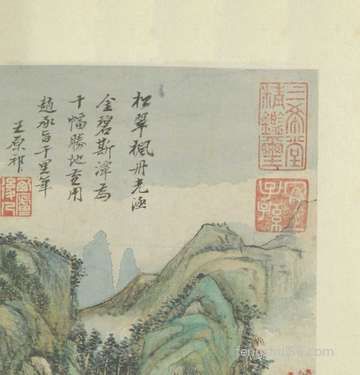 松翠楓丹
金碧斯渾為
千幅勝地用
趙承旨千里筆
王原祁
三希堂
精鑑璽
宜
子孫